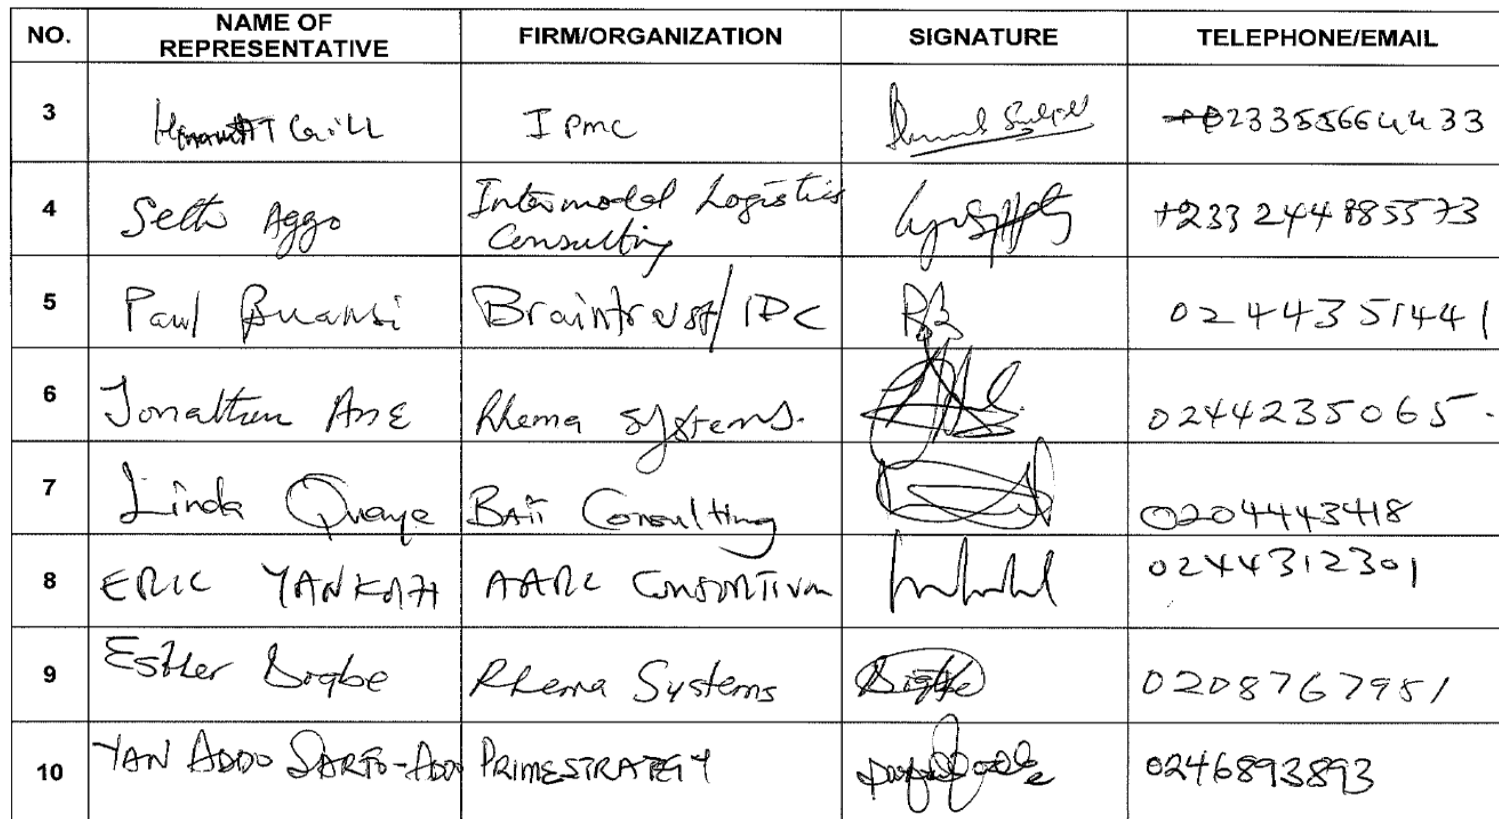 NO. NAME OF REPRESENTATIVE FIRM/ORGANIZATION SIGNATURE TELEPHONE/EMAIL
3 Gill IPMC 233555664433
4 Seth Aggo Intermodal Logistics Consulting +233 244 885573
5 Paul Buansi Braintrust/IDC PB 0244351441
6 Jonathan Ane Rhema Systems. 0244235065.
7 Linda Quaye Consulting 0204443418
8 ERIC YANKAH AARC CONSORTIUM 0244312301
9 Esther Rhema Systems 0208767951
10 YAN ADDO SARFO-ADDO PRIMESTRATEGY 0246893893